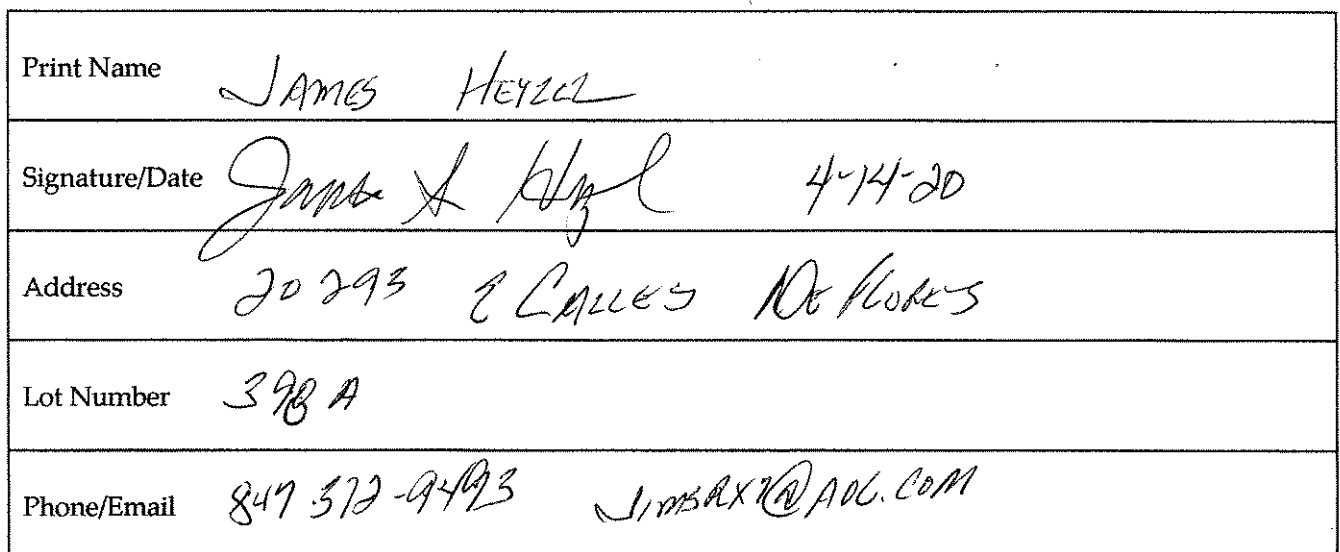 Print Name JAMES HEYZEL
Signature/Date James S Heyzel 4-14-20
Address 20293 E CALLES DE FLORES
Lot Number 398 A
Phone/Email 847-372-9493 JIMSRX7@AOL.COM